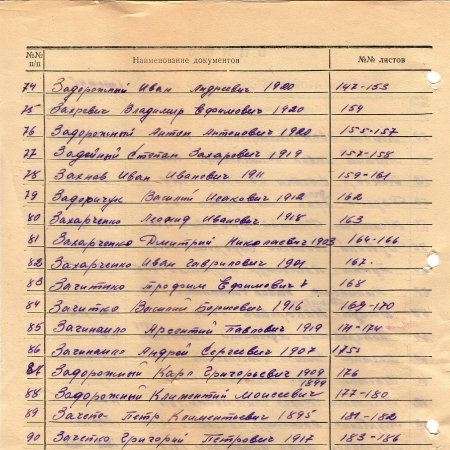 №№ п/п Наименование документов №№ листов
74 Задорожный Иван Андреевич 1920 147-153
75 Захревич Владимир Ефимович 1920 154
76 Задорожный Антон Антонович 1920 155-157
77 Задойный Степан Захарович 1919 157-158
78 Захнов Иван Иванович 1911 159-161
79 Задоричук Василий Исакович 1912 162
80 Захарченко Леонид Иванович 1918 163
81 Захарченко Дмитрий Николаевич 1903 164-166
82 Захарченко Иван Гаврилович 1901 167.
83 Зачитко Трофим Ефимович 168
84 Зачитко Василий Борисович 1916 169-170
85 Зачинайло Арсентий Павлович 1919 171-174
86 Зачинайло Андрей Сергеевич 1907 175
87 Задорожный Карп Григорьевич 1909 176
88 Задорожный Климентий Моисеевич 1899 177-180
89 Зачепа Петр Климентьевич 1895 181-182
90 Зачетко Григорий Петрович 1917 183-186